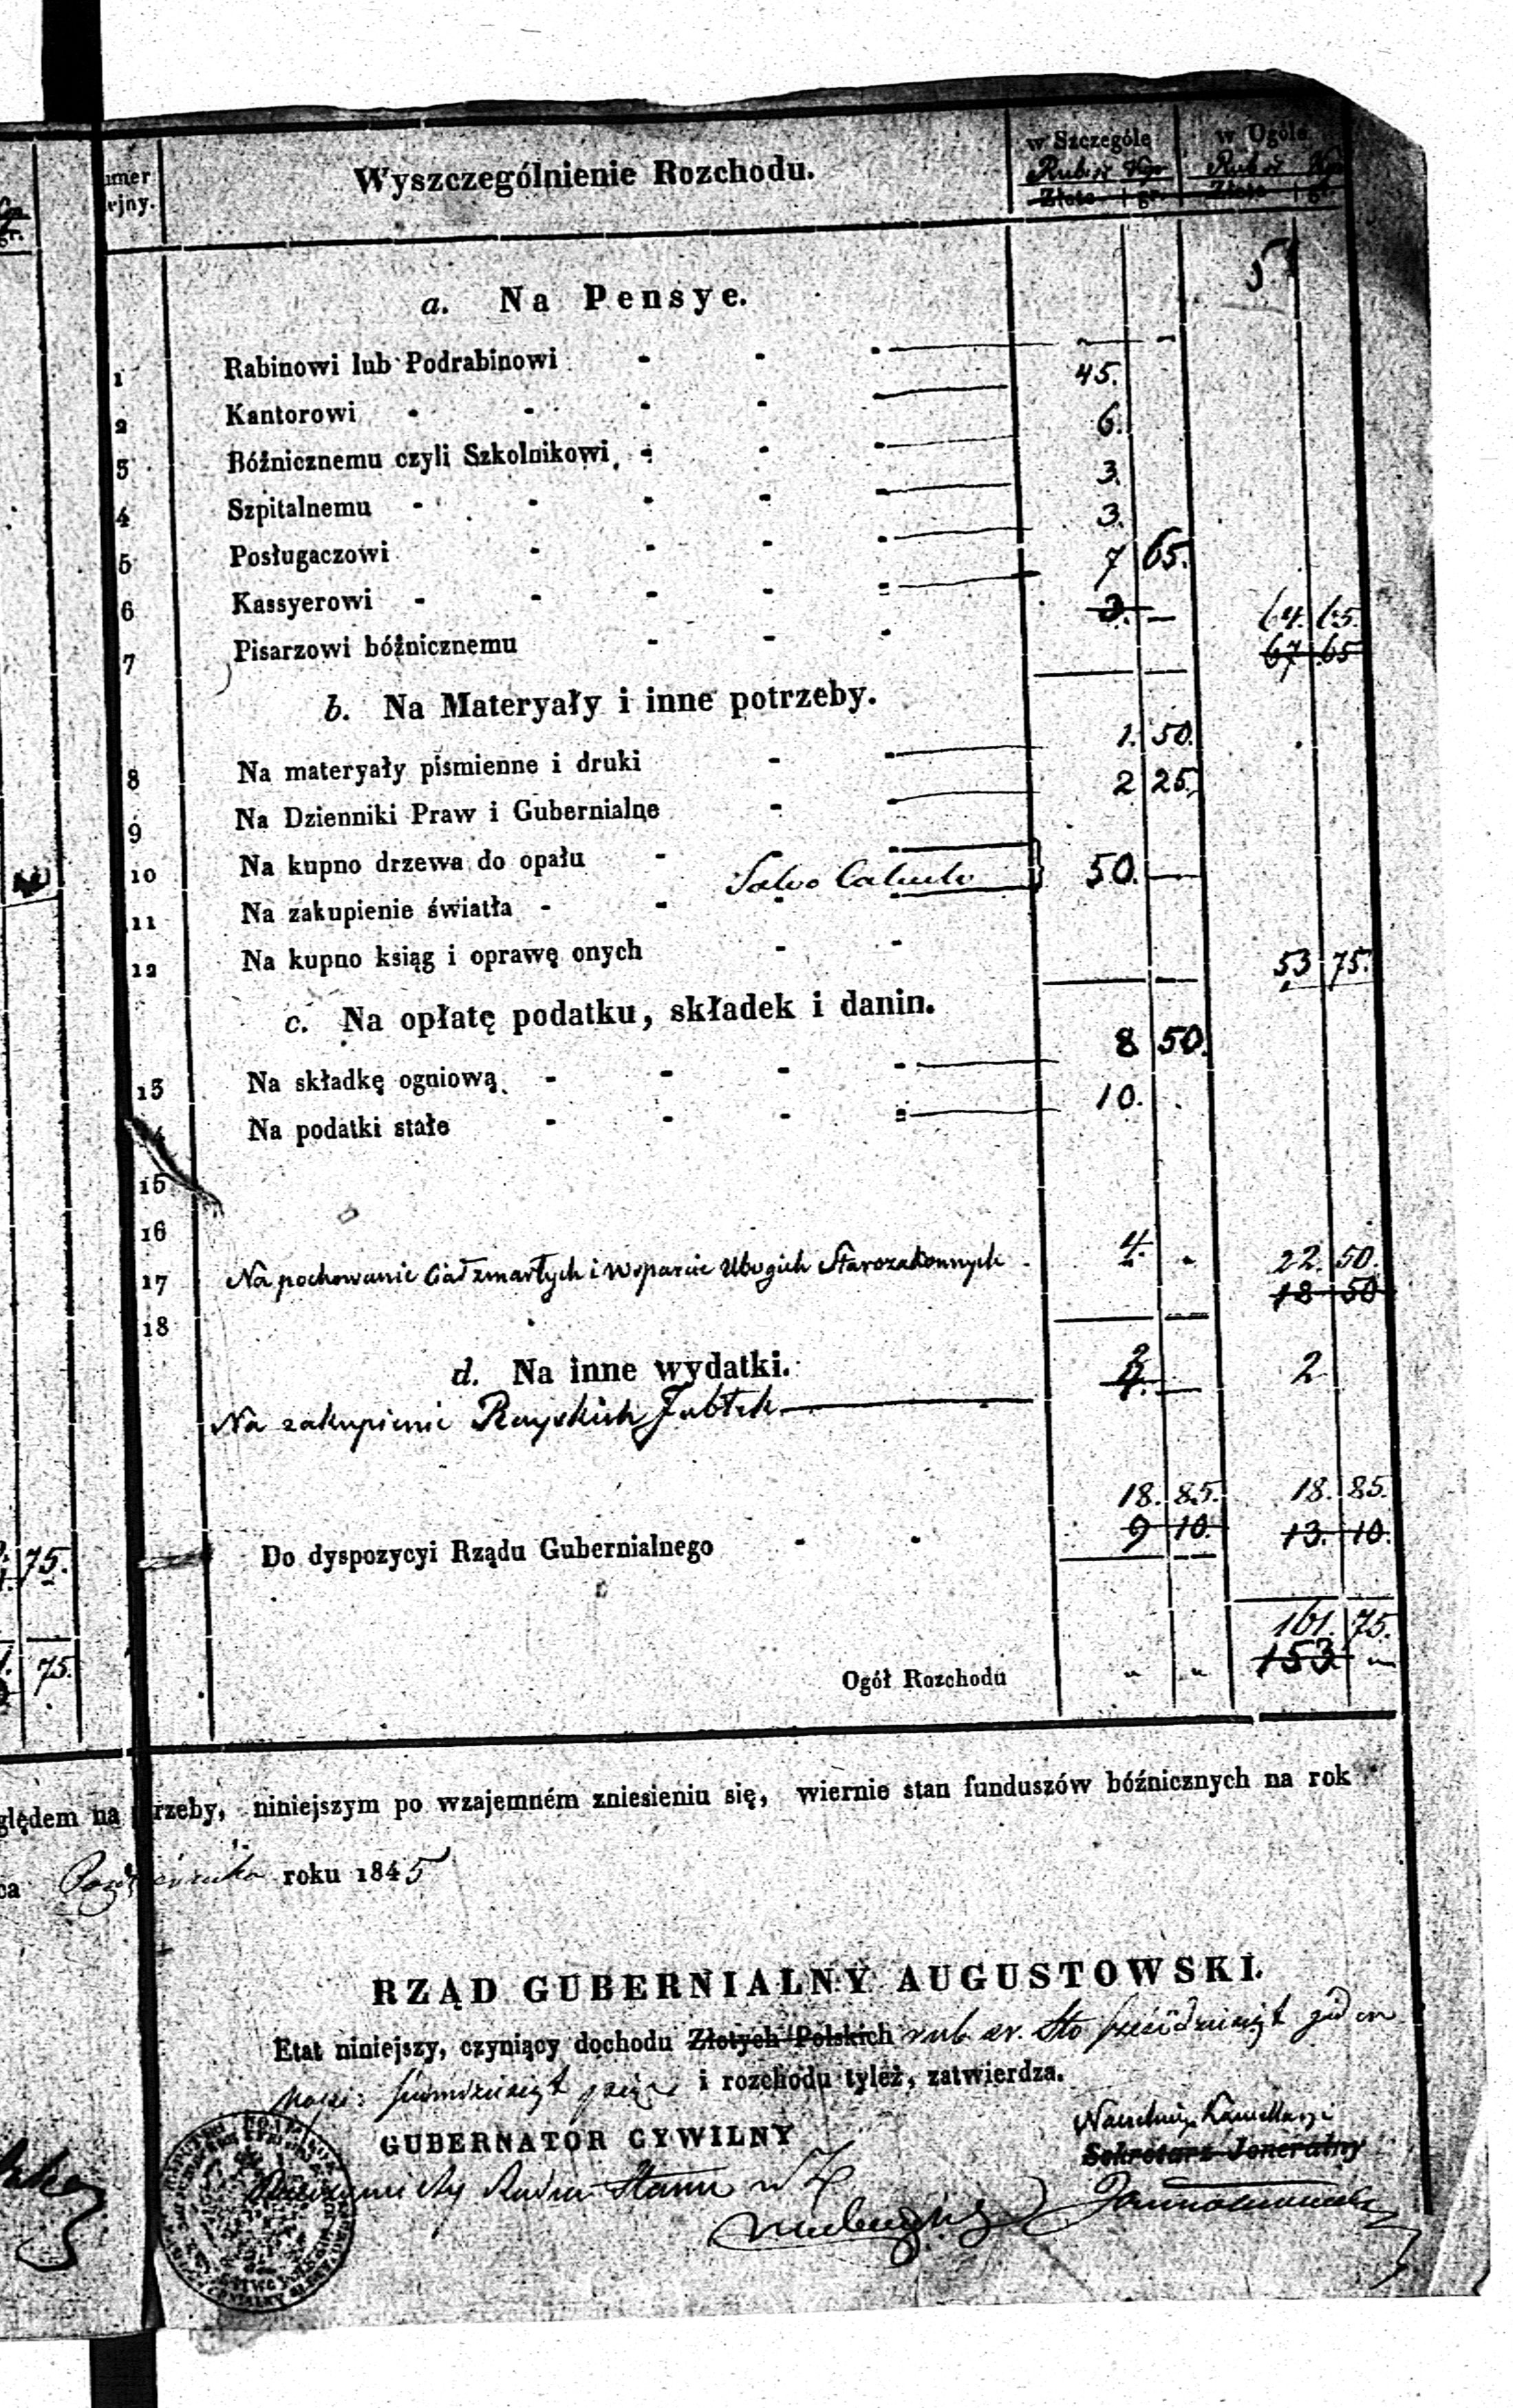 umer
rjny.
Wyszczególnienie Rozchodu.
w Szczególe
w Ogóle
Rub. sr Kop
Rub sr Kop
Złote gr.
Złote gr.
a. Na Pensye.
1 Rabinowi lub Podrabinowi - - -
2 Kantorowi - - - - - 45.
3 Bóżnicznemu czyli Szkolnikowi, - - - 6.
4 Szpitalnemu - - - - - 3.
5 Posługaczowi - - - - 3.
6 Kassyerowi - - - - - 7 65.
7 Pisarzowi bóżnicznemu - - - 3. — 64. 65
67 65
b. Na Materyały i inne potrzeby.
8 Na materyały piśmienne i druki - - 1. 50.
9 Na Dzienniki Praw i Gubernialne - - 2 25.
10 Na kupno drzewa do opału - - -
Salvo Calculo 50. —
11 Na zakupienie światła - - - -
12 Na kupno ksiąg i oprawę onych - - 53 75.
c. Na opłatę podatku, składek i danin.
13 Na składkę ogniową - - - - 8 50.
14 Na podatki stałe - - - - 10.
15
16
17 Na pochowanie Ciał zmarłych i wsparcie Ubogich Starozakonnych - 4. 22. 50.
18 50
18
d. Na inne wydatki.
Na zakupienie Rayskich Jabłek 2 2
4. —
18. 85. 18. 85.
Do dyspozycyi Rządu Gubernialnego - - 9 10 13. 10.
75.
161. 75.
Ogół Rozchodu " " 153 —
75.
ględem na rzeby, niniejszym po wzajemném zniesieniu się, wiernie stan funduszów bóźnicznych na rok
ca Października roku 1845
RZĄD GUBERNIALNY AUGUSTOWSKI.
Etat niniejszy, czyniący dochodu Złotych Polskich rub. sr. Sto sześćdziesiąt jeden
kope: siedmdziesiąt pięć i rozchodu tyleż, zatwierdza.
GUBERNATOR CYWILNY
Naczelnik Kancellaryi
Sekretarz Jeneralny
Rzeczywisty Radca Stanu